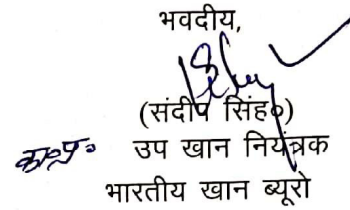 भवदीय,
(संदीप सिंह०)
का०प्र० उप खान नियंत्रक
भारतीय खान ब्यूरो